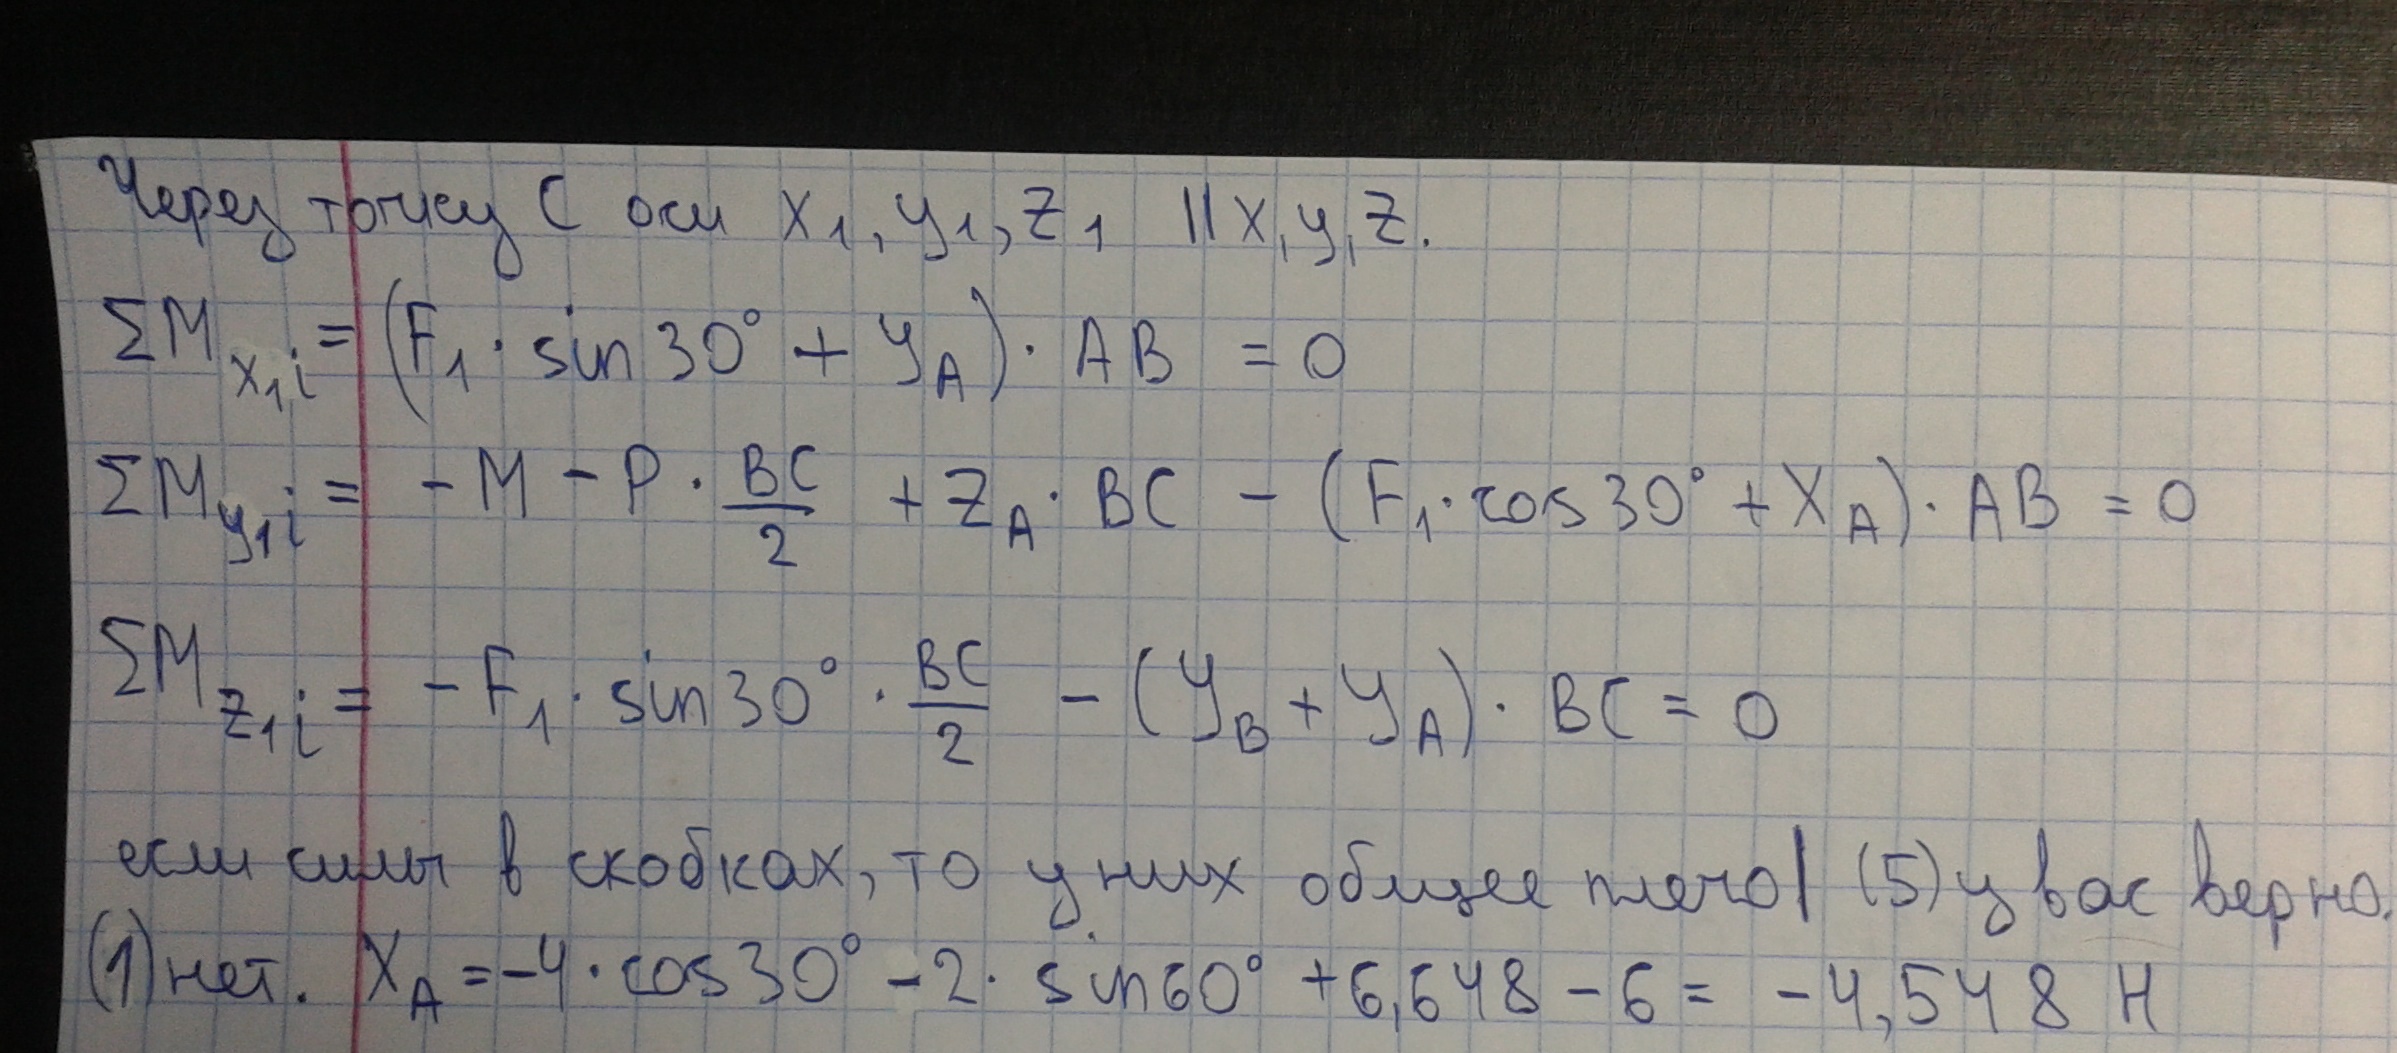 Через точку С оси x₁, y₁, z₁ || x, y, z.
ΣM_{x₁i} = (F₁ · sin 30° + Y_A) · AB = 0
ΣM_{y₁i} = - M - P · BC/2 + Z_A · BC - (F₁ · cos 30° + X_A) · AB = 0
ΣM_{z₁i} = - F₁ · sin 30° · BC/2 - (Y_B + Y_A) · BC = 0
если силы в скобках, то у них общее плечо | (5) у вас верно.
(1) нет. X_A = -4 · cos 30° - 2 · sin 60° + 6,648 - 6 = -4,548 Н